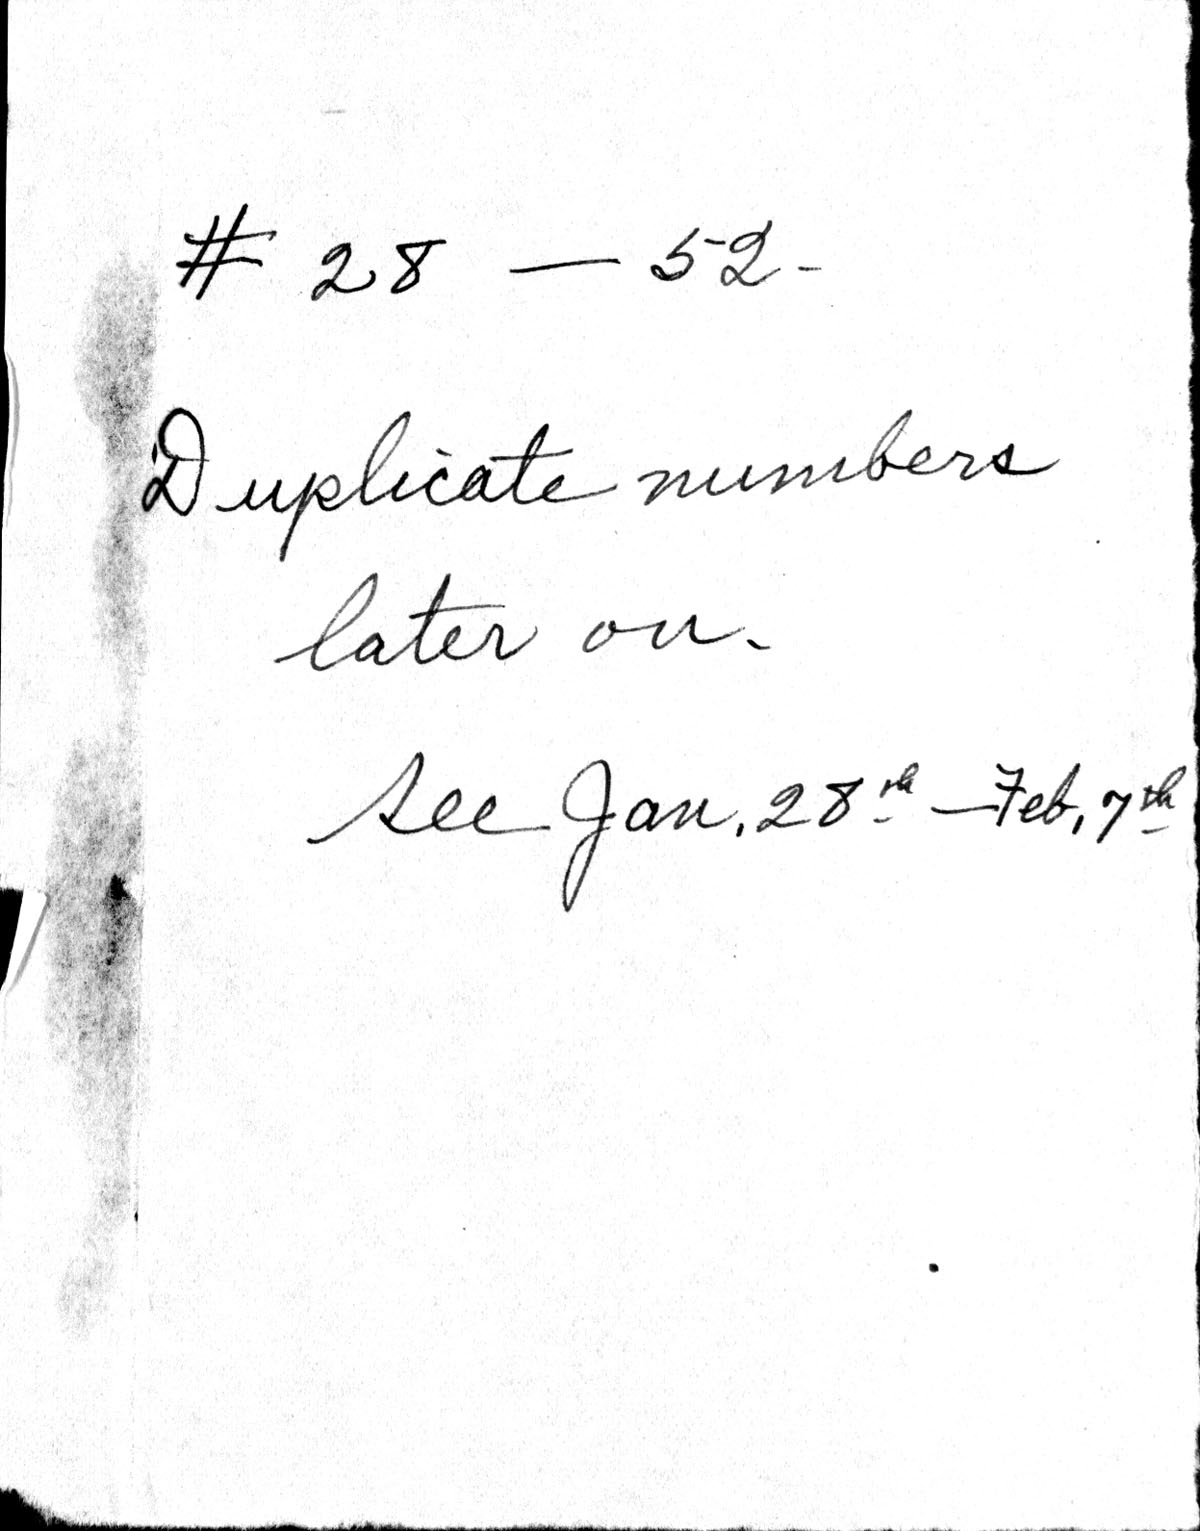 # 28 — 52-
Duplicate numbers
later on.
see Jan. 28th — Feb, 7th